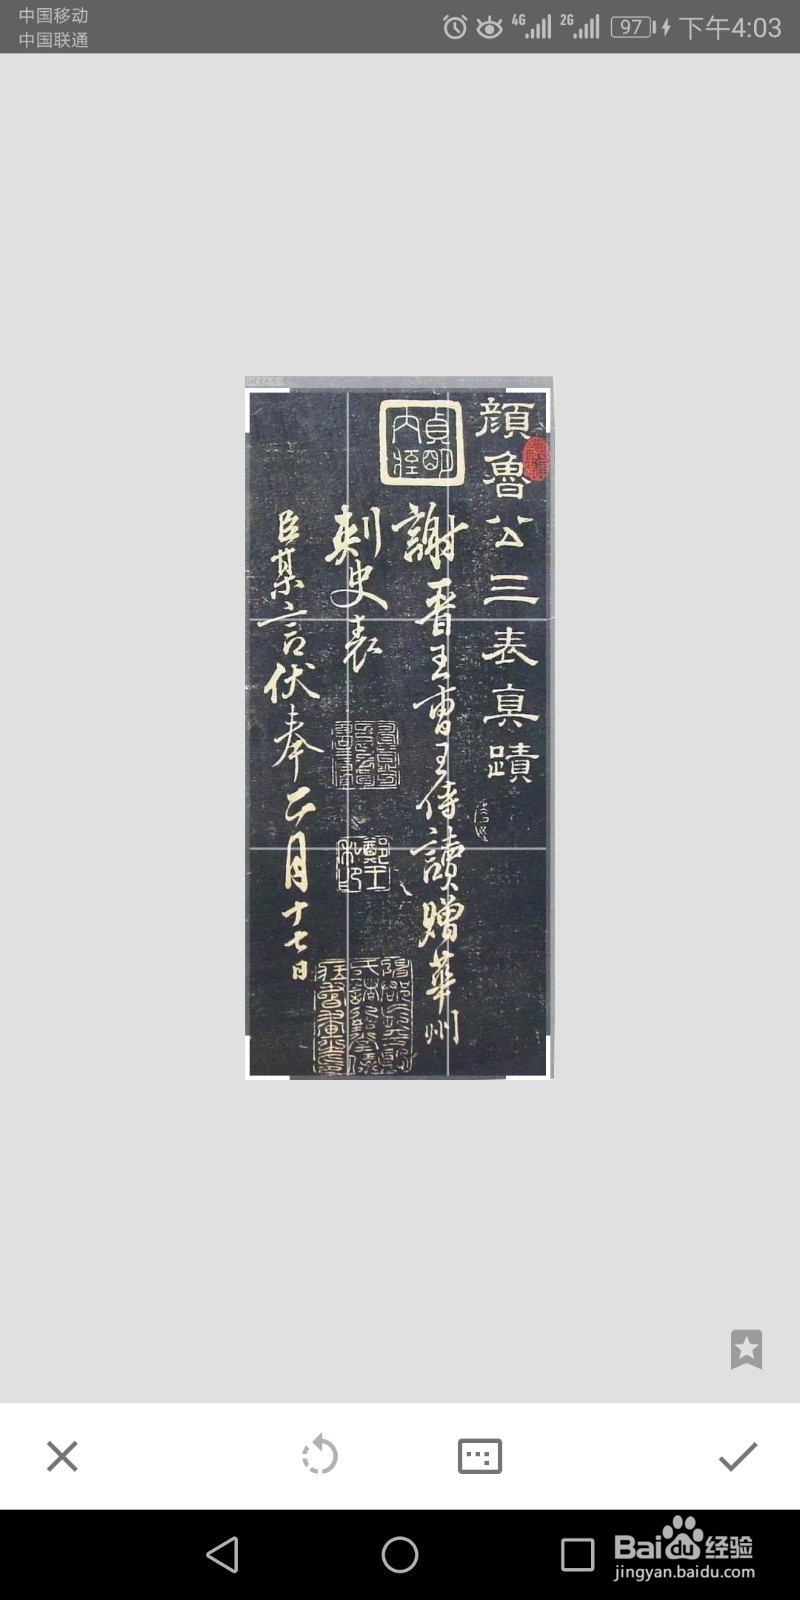 中国移动
中国联通
4G
2G
97
下午4:03
顔魯公三表真蹟
貞明
内侄
謝晋王曹王侍讀贈華州
刺史表
臣某言伏奉二月十七日
鄭王
私印
Baidu经验
jingyan.baidu.com